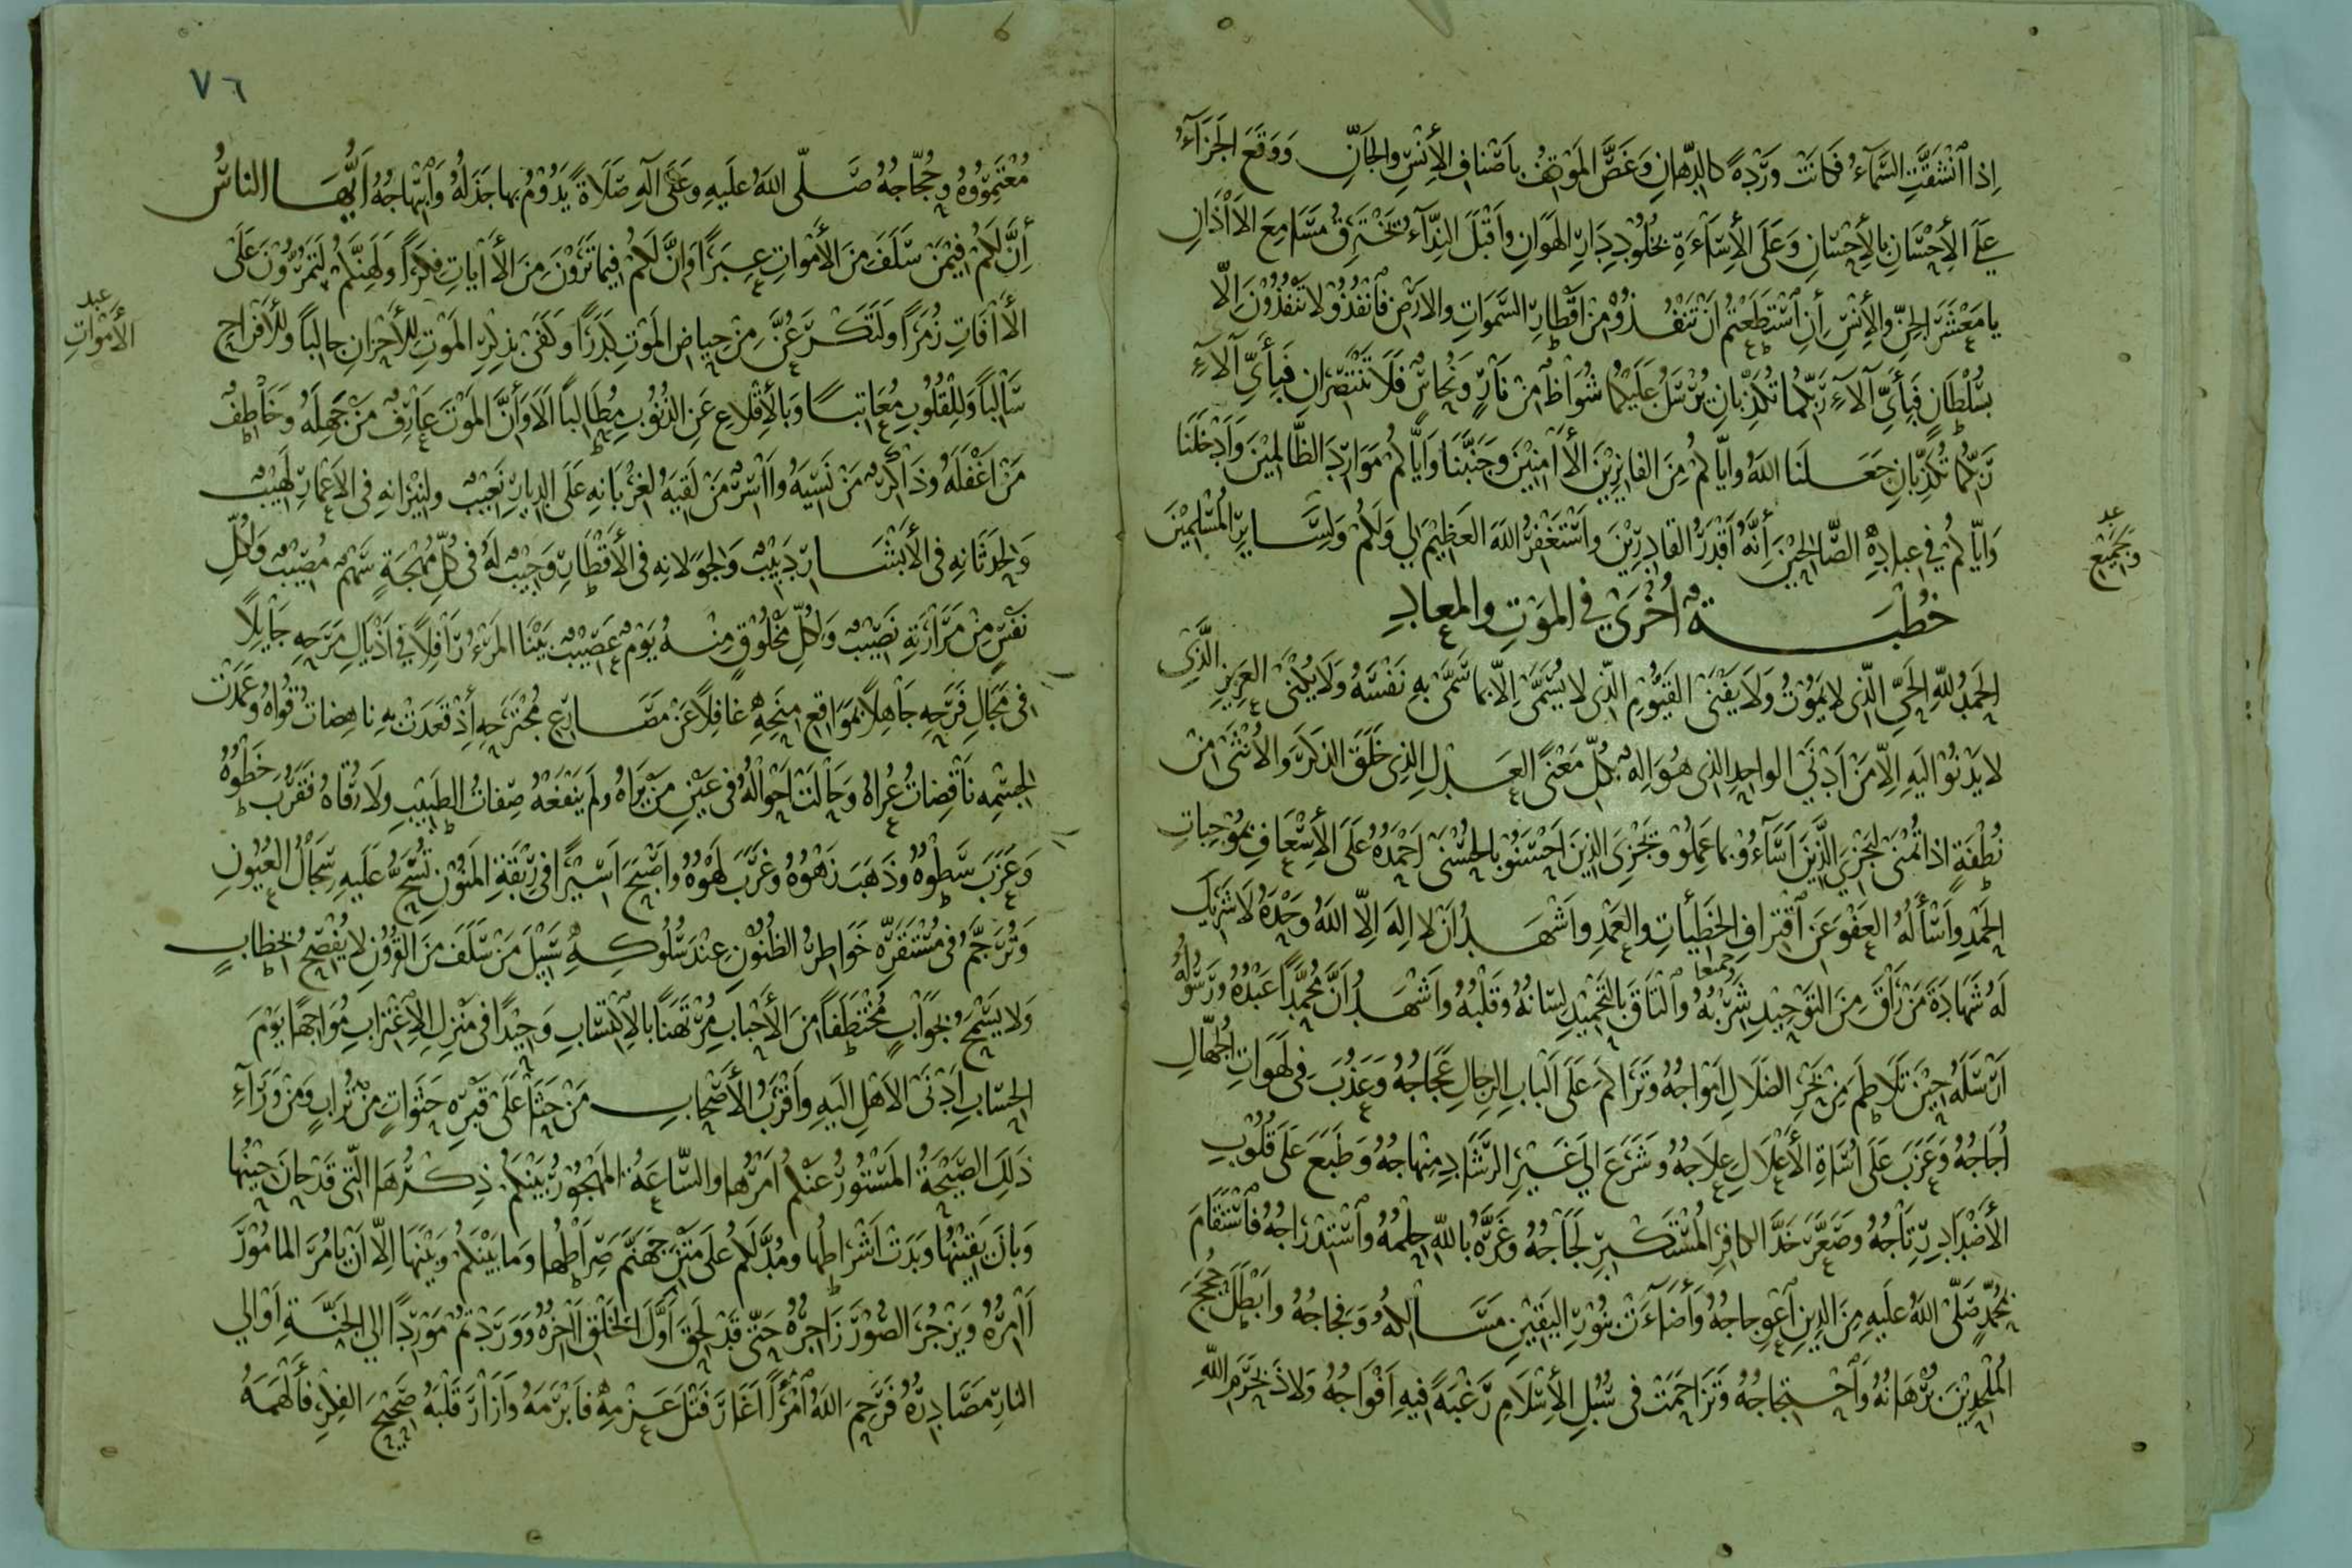 إِذَا ٱنْشَقَّتِ السَّمَآءُ فَكَانَتْ وَرْدَةً كَالدِّهَانِ وَغَصَّ الْمَوْقِفُ بِأَصْنَافِ الْإِنْسِ وَالْجَانِّ وَوَقَعَ الْجَزَآءُ
عَلَى الْإِحْسَانِ بِالْإِحْسَانِ وَعَلَى الْإِسَآءَةِ بِخُلُودِ دَارِ الْهَوَانِ وَأَقْبَلَ النِّدَآءُ يَخْتَرِقُ مَسَامِعَ الْآذَانِ
يَا مَعْشَرَ الْجِنِّ وَالْإِنْسِ إِنِ ٱسْتَطَعْتُمْ أَنْ تَنْفُذُوْا مِنْ أَقْطَارِ السَّمَوَاتِ وَالْأَرْضِ فَٱنْفُذُوْا لَا تَنْفُذُوْنَ إِلَّا
بِسُلْطَانٍ فَبِأَيِّ آلَآءِ رَبِّكُمَا تُكَذِّبَانِ يُرْسَلُ عَلَيْكُمَا شُوَاظٌ مِنْ نَارٍ وَنُحَاسٌ فَلَا تَنْتَصِرَانِ فَبِأَيِّ آلَآءِ
رَبِّكُمَا تُكَذِّبَانِ جَعَلَنَا اللهُ وَإِيَّاكُمْ مِنَ الْفَائِزِيْنَ الْآمِنِيْنَ وَجَنَّبَنَا وَإِيَّاكُمْ مَوَارِدَ الظَّالِمِيْنَ وَأَدْخَلَنَا
وَإِيَّاكُمْ فِي عِبَادِهِ الصَّالِحِيْنَ إِنَّهُ أَقْدَرُ الْقَادِرِيْنَ وَأَسْتَغْفِرُ اللهَ الْعَظِيْمَ لِي وَلَكُمْ وَلِسَايِرِ الْمُسْلِمِيْنَ
وَلِجَمِيْعِ
خُطْبَةٌ أُخْرَى فِي الْمَوْتِ وَالْمَعَادِ
الْحَمْدُ لِلَّهِ الْحَيِّ الَّذِي لَا يَمُوْتُ وَلَا يَفْنَى الْقَيُّوْمِ الَّذِي لَا يُسَمَّى إِلَّا بِمَا سَمَّى بِهِ نَفْسَهُ وَلَا يُكْنَى الْعَزِيْزِ الَّذِي
لَا يَدْنُوْ إِلَيْهِ إِلَّا مَنْ أَدْنَى الْوَاحِدِ الَّذِي هُوَ إِلَهٌ بِكُلِّ مَعْنًى الْعَدْلِ الَّذِي خَلَقَ الذَّكَرَ وَالْأُنْثَى مِنْ
نُطْفَةٍ إِذَا تُمْنَى لِيَجْزِيَ الَّذِيْنَ أَسَآءُوْا بِمَا عَمِلُوْا وَيَجْزِيَ الَّذِيْنَ أَحْسَنُوْا بِالْحُسْنَى أَحْمَدُهُ عَلَى الْإِسْعَافِ بِمُوْجِبَاتِ
الْحَمْدِ وَأَسْأَلُهُ الْعَفْوَ عَنِ ٱقْتِرَافِ الْخَطَأِ وَالْعَمْدِ وَأَشْهَدُ أَنْ لَا إِلَهَ إِلَّا اللهُ وَحْدَهُ لَا شَرِيْكَ
لَهُ شَهَادَةَ مَنْ رَاقَ مِنَ التَّوْحِيْدِ شِرْبُهُ وَٱلْتَاقَ بِالتَّحْمِيْدِ لِسَانُهُ وَقَلْبُهُ وَأَشْهَدُ أَنَّ مُحَمَّدًا عَبْدُهُ وَرَسُوْلُهُ
أَرْسَلَهُ حِيْنَ تَلَاطَمَ مِنْ بَحْرِ الضَّلَالِ أَمْوَاجُهُ وَتَرَاكَمَ عَلَى أَلْبَابِ الرِّجَالِ عَجَاجُهُ وَعَذُبَ فِي لَهَوَاتِ الْجُهَّالِ
أُجَاجُهُ وَعَزَبَ عَلَى أُسَاةِ الْأَعْلَالِ عِلَاجُهُ وَشَرَعَ إِلَى غَيْرِ الرَّشَادِ مِنْهَاجُهُ وَطَبَعَ عَلَى قُلُوْبِ
الْأَضْدَادِ رِتَاجُهُ وَصَعَّرَ خَدَّ الْكَافِرِ الْمُسْتَكْبِرِ لَجَاجُهُ وَغَرَّهُ بِاللهِ حِلْمُهُ وَٱسْتِدْرَاجُهُ فَٱسْتَقَامَ
بِمُحَمَّدٍ صَلَّى اللهُ عَلَيْهِ مِنَ الدِّيْنِ ٱعْوِجَاجُهُ وَأَضَآءَتْ بِنُوْرِ الْيَقِيْنِ مَسَالِكُهُ وَفِجَاجُهُ وَأَبْطَلَ حُجَجَ
الْمُلْحِدِيْنَ بُرْهَانُهُ وَٱحْتِجَاجُهُ وَتَزَاحَمَتْ فِي سُبُلِ الْإِسْلَامِ رَغْبَةً فِيْهِ أَفْوَاجُهُ وَلَاذَ بِحَرَمِ اللهِ
٧٦
مُعْتَمِرُوْهُ وَحُجَّاجُهُ صَلَّى اللهُ عَلَيْهِ وَعَلَى آلِهِ صَلَاةً يَدُوْمُ بِهَا جَذَلُهُ وَٱبْتِهَاجُهُ أَيُّهَا النَّاسُ
إِنَّ لَكُمْ فِيْمَنْ سَلَفَ مِنَ الْأَمْوَاتِ عِبَرًا وَإِنَّ لَكُمْ فِيْمَا تَرَوْنَ مِنَ الْآيَاتِ فِكَرًا وَلَكِنَّكُمْ لَتَمُرُّوْنَ عَلَى
الْأَمْوَاتِ
الْآفَاتِ زُمَرًا وَلَتَكْرَعُنَّ مِنْ حِيَاضِ الْمَوْتِ كَدَرًا وَكَفَى بِذِكْرِ الْمَوْتِ لِلْأَحْزَانِ جَالِبًا وَلِلْأَفْرَاحِ
سَالِبًا وَلِلْقُلُوْبِ مُعَاتِبًا وَبِالْإِقْلَاعِ عَنِ الذُّنُوْبِ مُطَالِبًا أَلَا وَإِنَّ الْمَوْتَ عَارِفٌ مَنْ جَهِلَهُ وَخَاطِفٌ
مَنْ أَغْفَلَهُ وَذَاكِرٌ مَنْ نَسِيَهُ وَآسِرٌ مَنْ لَقِيَهُ لِغِرْبَانِهِ عَلَى الدِّيَارِ نَعِيْبٌ وَلِنِيْرَانِهِ فِي الْأَعْمَارِ لَهِيْبٌ
وَلِحَدَثَانِهِ فِي الْأَبْشَارِ دَبِيْبٌ وَلِجَوَلَانِهِ فِي الْأَقْطَارِ وَجِيْبٌ لَهُ فِي كُلِّ مُهْجَةٍ سَهْمٌ مُصِيْبٌ وَلِكُلِّ
نَفْسٍ مِنْ مَرَارَتِهِ نَصِيْبٌ وَلِكُلِّ مَخْلُوْقٍ مِنْهُ يَوْمٌ عَصِيْبٌ بَيْنَا الْمَرْءُ رَافِلًا فِي أَذْيَالِ مَرَحِهِ جَايِلًا
فِي مَجَالِ فَرَحِهِ جَاهِلًا بِمَوَاقِعِ مِنَحِهِ غَافِلًا عَنْ مَصَارِعِ مُجْتَرَحِهِ إِذْ قَعَدَتْ بِهِ نَاهِضَاتُ قُوَاهُ وَعَمَدَتْ
لِجِسْمِهِ نَاقِضَاتُ عُرَاهُ وَحَالَتْ أَحْوَالُهُ فِي عَيْنِ مَنْ يَرَاهُ وَلَمْ يَنْفَعْهُ صِفَاتُ الطَّبِيْبِ وَلَا رُقَاهُ فَقَرُبَ خَطْوُهُ
وَعَزَبَ سَطْوُهُ وَذَهَبَ زَهْوُهُ وَغَرَبَ لَهْوُهُ وَأَصْبَحَ أَسِيْرًا فِي رِبْقَةِ الْمَنُوْنِ تَسُحُّ عَلَيْهِ سِجَالُ الْعُيُوْنِ
وَتُرَجَّمُ فِي مُسْتَقَرِّهِ خَوَاطِرُ الظُّنُوْنِ عِنْدَ سُلُوْكِهِ سَبِيْلَ مَنْ سَلَفَ مِنَ الْقُرُوْنِ لَا يُفْصِحُ بِخِطَابٍ
وَلَا يَسْمَحُ بِجَوَابٍ مُخْتَطَفًا مِنَ الْأَحْبَابِ مُرْتَهَنًا بِالِٱكْتِسَابِ وَحِيْدًا فِي مَنْزِلِ الِٱغْتِرَابِ مُوَاجِهًا يَوْمَ
الْحِسَابِ أَدْنَى الْأَهْلِ إِلَيْهِ وَأَقْرَبُ الْأَصْحَابِ مَنْ حَثَا عَلَى قَبْرِهِ حَثَوَاتٍ مِنْ تُرَابٍ وَمِنْ وَرَآءِ
ذَلِكَ الصَّيْحَةُ الْمَسْتُوْرُ عَنْكُمْ أَمْرُهَا وَالسَّاعَةُ الْمَهْجُوْرُ بَيْنَكُمْ ذِكْرُهَا الَّتِي قَدْ حَانَ حِيْنُهَا
وَبَانَ يَقِيْنُهَا وَبَدَتْ أَشْرَاطُهَا وَمُدَّ لَكُمْ عَلَى مَتْنِ جَهَنَّمَ صِرَاطُهَا وَمَا بَيْنَكُمْ وَبَيْنَهَا إِلَّا أَنْ يَأْمُرَ الْمَأْمُوْرَ
آمِرُهُ وَيَزْجُرَ الصُّوْرَ زَاجِرُهُ حَتَّى قَدْ لَحِقَ أَوَّلَ الْخَلْقِ آخِرُهُ وَوَرَدْتُمْ مَوْرِدًا إِلَى الْجَنَّةِ أَوْ إِلَى
النَّارِ مَصَادِرُهُ فَرَحِمَ اللهُ ٱمْرَأً أَغَارَ فَتْلَ عَزْمِهِ فَأَبْرَمَهُ وَأَزَارَ قَلْبَهُ صَحِيْحَ الْفِكْرِ فَأَلْهَمَهُ